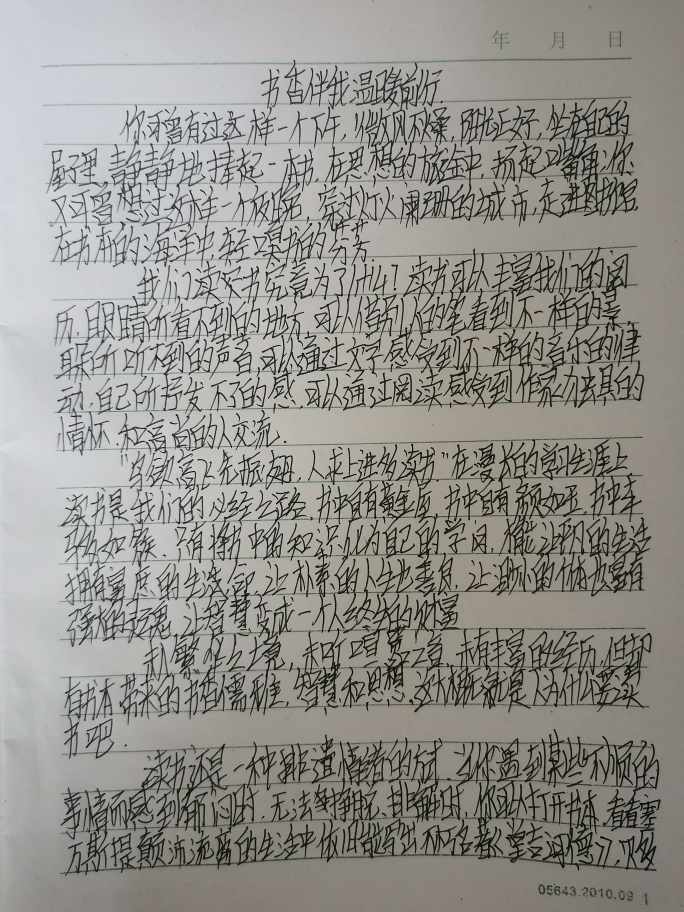 年 月 日
书香伴我温暖前行.
你可曾有过这样一个下午,微风不燥,阳光正好,坐在自己的
屋子里,静静地捧起一本书,在思想的旅途中,扬起嘴角;你
又可曾想过,好似在一个夜晚,穿过灯火阑珊的城市,走进图书馆,
在书本的海洋中,轻嗅书的芬芳.
我们读好书究竟为了什么?读书可以丰富我们的阅
历,眼睛所看不到的地方,可以借别人的笔看到不一样的景,
耳朵所听不到的声音,可以通过文字感受到不一样的音乐的律
动,自己所抒发不了的感,可以通过阅读感受到作家为去具的
情怀,和高尚的人交流.
"鸟欲高飞先振翅,人求上进先读书"在漫长的学习生涯上,
读书是我们的必经之路,书中自有黄金屋,书中自有颜如玉,书中车
马多如簇.只有将书中的知识化为自己的学问,才能让平凡的生活
拥有富庶的生活,让朴素的人生也善良,让渺小的个体也富有
强大的灵魂,让智慧变成一个人终生的财富
未入繁华之境,未听喧嚣之音,未有丰富的经历,但却
有书本带来的书香儒雅,智慧和思想,这大概就是人为什么要读
书吧.
读书还是一种排遣情绪的方式,当你遇到某些不顺的
事情而感到郁闷时,无法挣脱、排解时,你可以打开书本,看看塞
万斯提颠沛流离的生活中依旧能写出不知名著《堂吉诃德》,贝多
05643.2010.09 1